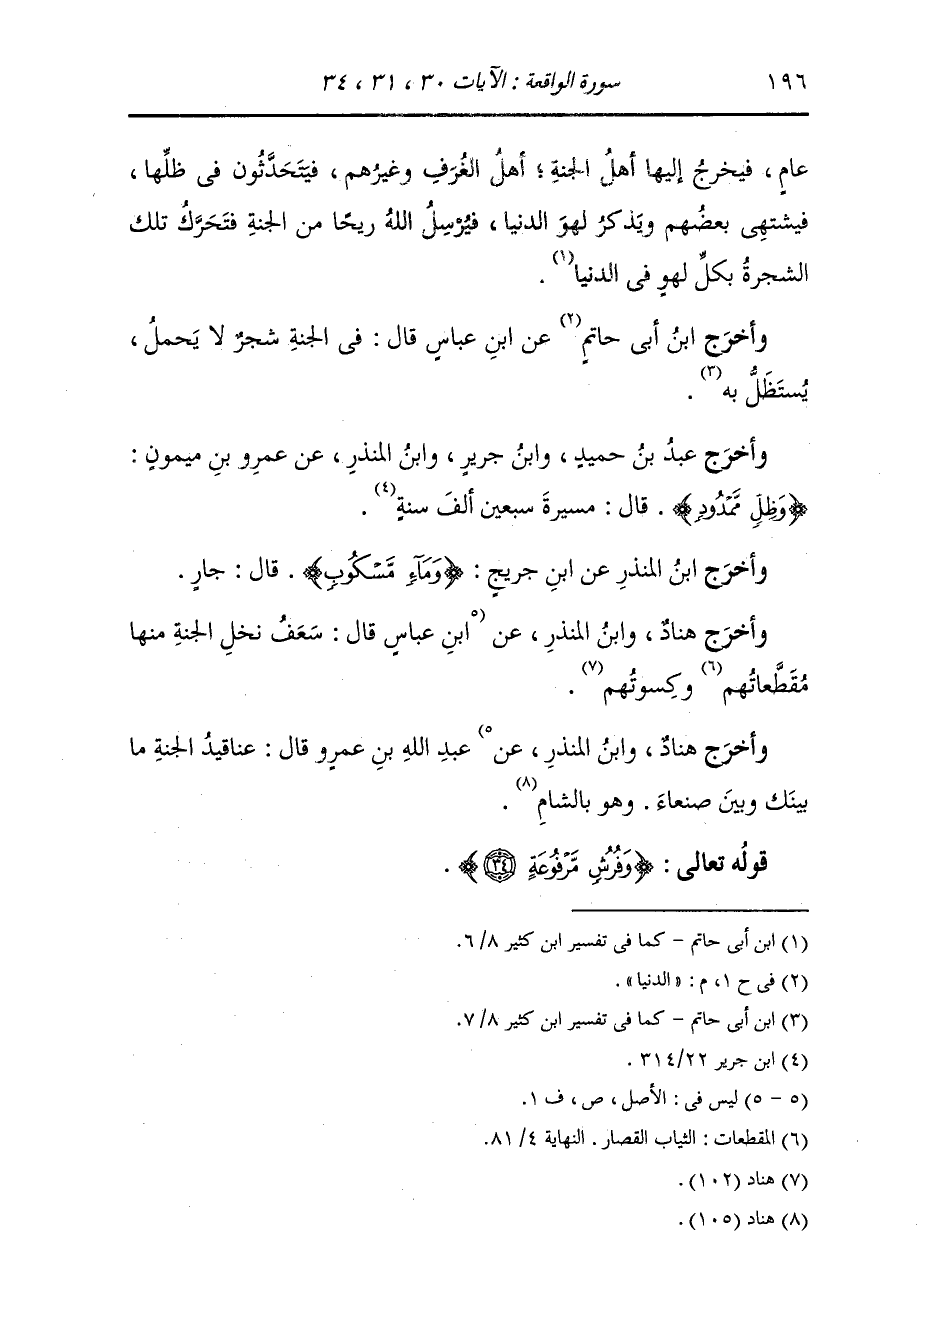 ١٩٦ سورة الواقعة : الآيات ٣٠ ، ٣١ ، ٣٤
عامٍ ، فيخرجُ إليها أهلُ الجنةِ ؛ أهلُ الغُرَفِ وغيرُهم ، فيَتَحَدَّثُون فى ظلِّها ،
فيشتهِى بعضُهم ويَذكرُ لهوَ الدنيا ، فيُرْسِلُ اللهُ ريحًا من الجنةِ فتَحَرَّكُ تلك
الشجرةُ بكلِّ لهوٍ فى الدنيا(١) .
وأخرَج ابنُ أبى حاتمٍ(٢) عن ابنِ عباسٍ قال : فى الجنةِ شجرٌ لا يَحملُ ،
يُستَظَلُّ به(٣) .
وأخرَج عبدُ بنُ حميدٍ ، وابنُ جريرٍ ، وابنُ المنذرِ ، عن عمرِو بنِ ميمونٍ :
﴿وَظِلٍّ مَّمْدُودٍ﴾ . قال : مسيرةَ سبعين ألفَ سنةٍ(٤) .
وأخرَج ابنُ المنذرِ عن ابنِ جريجٍ : ﴿وَمَآءٍ مَّسْكُوبٍ﴾ . قال : جارٍ .
وأخرَج هنادٌ ، وابنُ المنذرِ ، عن (٥ابنِ عباسٍ قال : سَعَفُ نخلِ الجنةِ منها
مُقَطَّعاتُهم(٦) وكِسوتُهم(٧) .
وأخرَج هنادٌ ، وابنُ المنذرِ ، عن٥) عبدِ اللهِ بنِ عمرٍو قال : عناقيدُ الجنةِ ما
بينَك وبينَ صنعاءَ . وهو بالشامِ(٨) .
قولُه تعالى : ﴿وَفُرُشٍ مَّرْفُوعَةٍ ٣٤﴾ .
(١) ابن أبى حاتم - كما فى تفسير ابن كثير ٨/ ٦.
(٢) فى ح ١، م : «الدنيا» .
(٣) ابن أبى حاتم - كما فى تفسير ابن كثير ٨/ ٧.
(٤) ابن جرير ٢٢/ ٣١٤ .
(٥ - ٥) ليس فى : الأصل ، ص ، ف ١.
(٦) المقطعات : الثياب القصار . النهاية ٤/ ٨١.
(٧) هناد (١٠٢) .
(٨) هناد (١٠٥) .